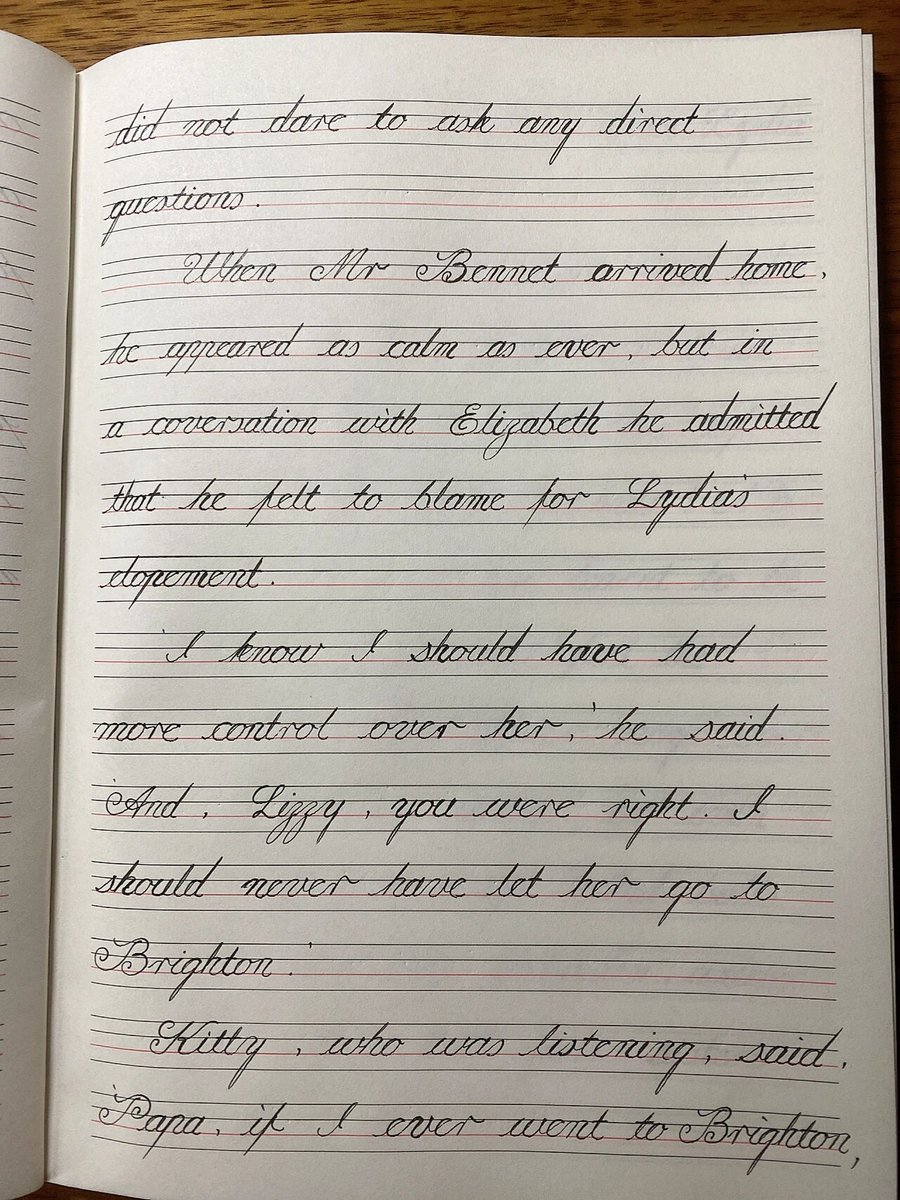 did not dare to ask any direct
questions.
When Mr Bennet arrived home,
he appeared as calm as ever, but in
a coversation with Elizabeth he admitted
that he felt to blame for Lydia's
elopement.
'I know I should have had
more control over her,' he said.
'And, Lizzy, you were right. I
should never have let her go to
Brighton.'
Kitty, who was listening, said,
'Papa, if I ever went to Brighton,